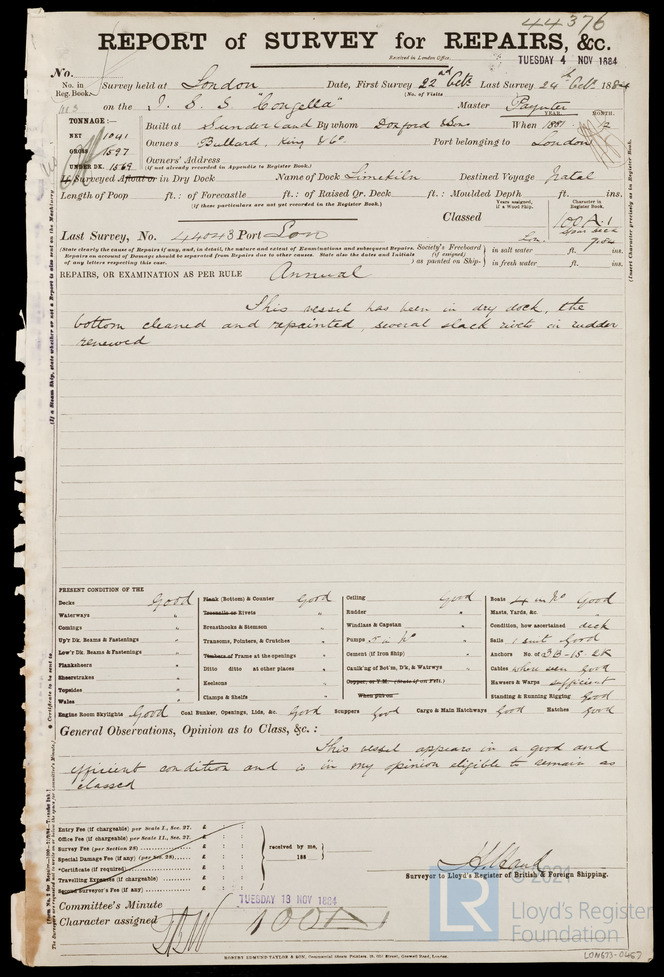 44376
REPORT of SURVEY for REPAIRS, &c.
Received in London Office.
TUESDAY 4 NOV 1884
No.
No. in Reg. Book. Survey held at London Date, First Survey 22nd Oct. Last Survey 24th Oct. 1884
(No. of Visits
on the I. S. S "Congella" Master Paynter
TONNAGE:— YEAR. MONTH.
NET 1041 Built at Sunderland By whom Doxford & Sons When 1881 12
GROSS 1597 Owners Bullard, King & Co. Port belonging to London
UNDER DK. 1569 Owners' Address
(if not already recorded in Appendix to Register Book.)
If Surveyed Afloat or in Dry Dock Name of Dock Limekiln Destined Voyage Natal
Length of Poop ft.: of Forecastle ft.: of Raised Qr. Deck ft.: Moulded Depth ft. ins.
(if these particulars are not yet recorded in the Register Book.)
Years assigned, if a Wood Ship.
Character in Register Book.
Classed 100 A.1
Lon. 7.84
Last Survey, No. 44043 Port Lon
(State clearly the cause of Repairs if any, and, in detail, the nature and extent of Examinations and subsequent Repairs.
Repairs on account of Damage should be separated from Repairs due to other causes. State also the dates and Initials
of any letters respecting this case.
Society's Freeboard (if assigned) as painted on Ship-
in salt water ft. ins.
in fresh water ft. ins.
REPAIRS, OR EXAMINATION AS PER RULE Annual
This vessel has been in dry dock, the
bottom cleaned and repainted, several slack rivets in rudder
renewed
PRESENT CONDITION OF THE
Decks Good
Waterways "
Comings "
Up'r Dk. Beams & Fastenings "
Low'r Dk. Beams & Fastenings "
Planksheers "
Sheerstrakes "
Topsides "
Wales "
Plank (Bottom) & Counter Good
Treenails or Rivets "
Breasthooks & Stemson "
Transoms, Pointers, & Crutches "
Timbers of Frame at the openings "
Ditto ditto at other places "
Keelsons "
Clamps & Shelfs "
Ceiling Good
Rudder "
Windlass & Capstan "
Pumps "
Cement (if Iron Ship) "
Caulk'ng of Bot'm, D'k, & Watrwys "
Copper, or Y.M. (State if on Felt.)
When put on
Boats 4 in No Good
Masts, Yards, &c. "
Condition, how ascertained deck
Sails 1 suit Good
Anchors No. of 3B-1S-2K
Cables where seen good
Hawsers & Warps sufficient
Standing & Running Rigging Good
Engine Room Skylights Good Coal Bunker, Openings, Lids, &c. Good Scuppers Good Cargo & Main Hatchways Good Hatches Good
General Observations, Opinion as to Class, &c.:
This vessel appears in a good and
efficient condition and is in my opinion eligible to remain as
classed
Entry Fee (if chargeable) per Scale I., Sec. 27. £ : :
Office Fee (if chargeable) per Scale II., Sec. 27. £ : :
Survey Fee (per Section 28) £ : :
Special Damage Fee (if any) (per Sec. 28) £ : :
*Certificate (if required) £ : :
Travelling Expenses (if chargeable) £ : :
Second Surveyor's Fee (if any) £ : :
received by me,
188
Surveyor to Lloyd's Register of British & Foreign Shipping.
Committee's Minute TUESDAY 13 NOV 1884
Character assigned 100A1
ROBERT EDMUND TAYLOR & SON, Commercial Steam Printers, 19, Old Street, Goswell Road, London.
© 2021
LR
Lloyd's Register
Foundation
LON673-0467
(If a Steam Ship, state whether or not a Report is also sent on the Machinery
(Insert Character precisely as in Register Book.